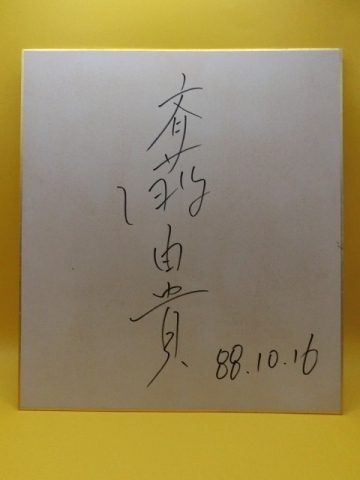 斉藤由貴
88.10.16